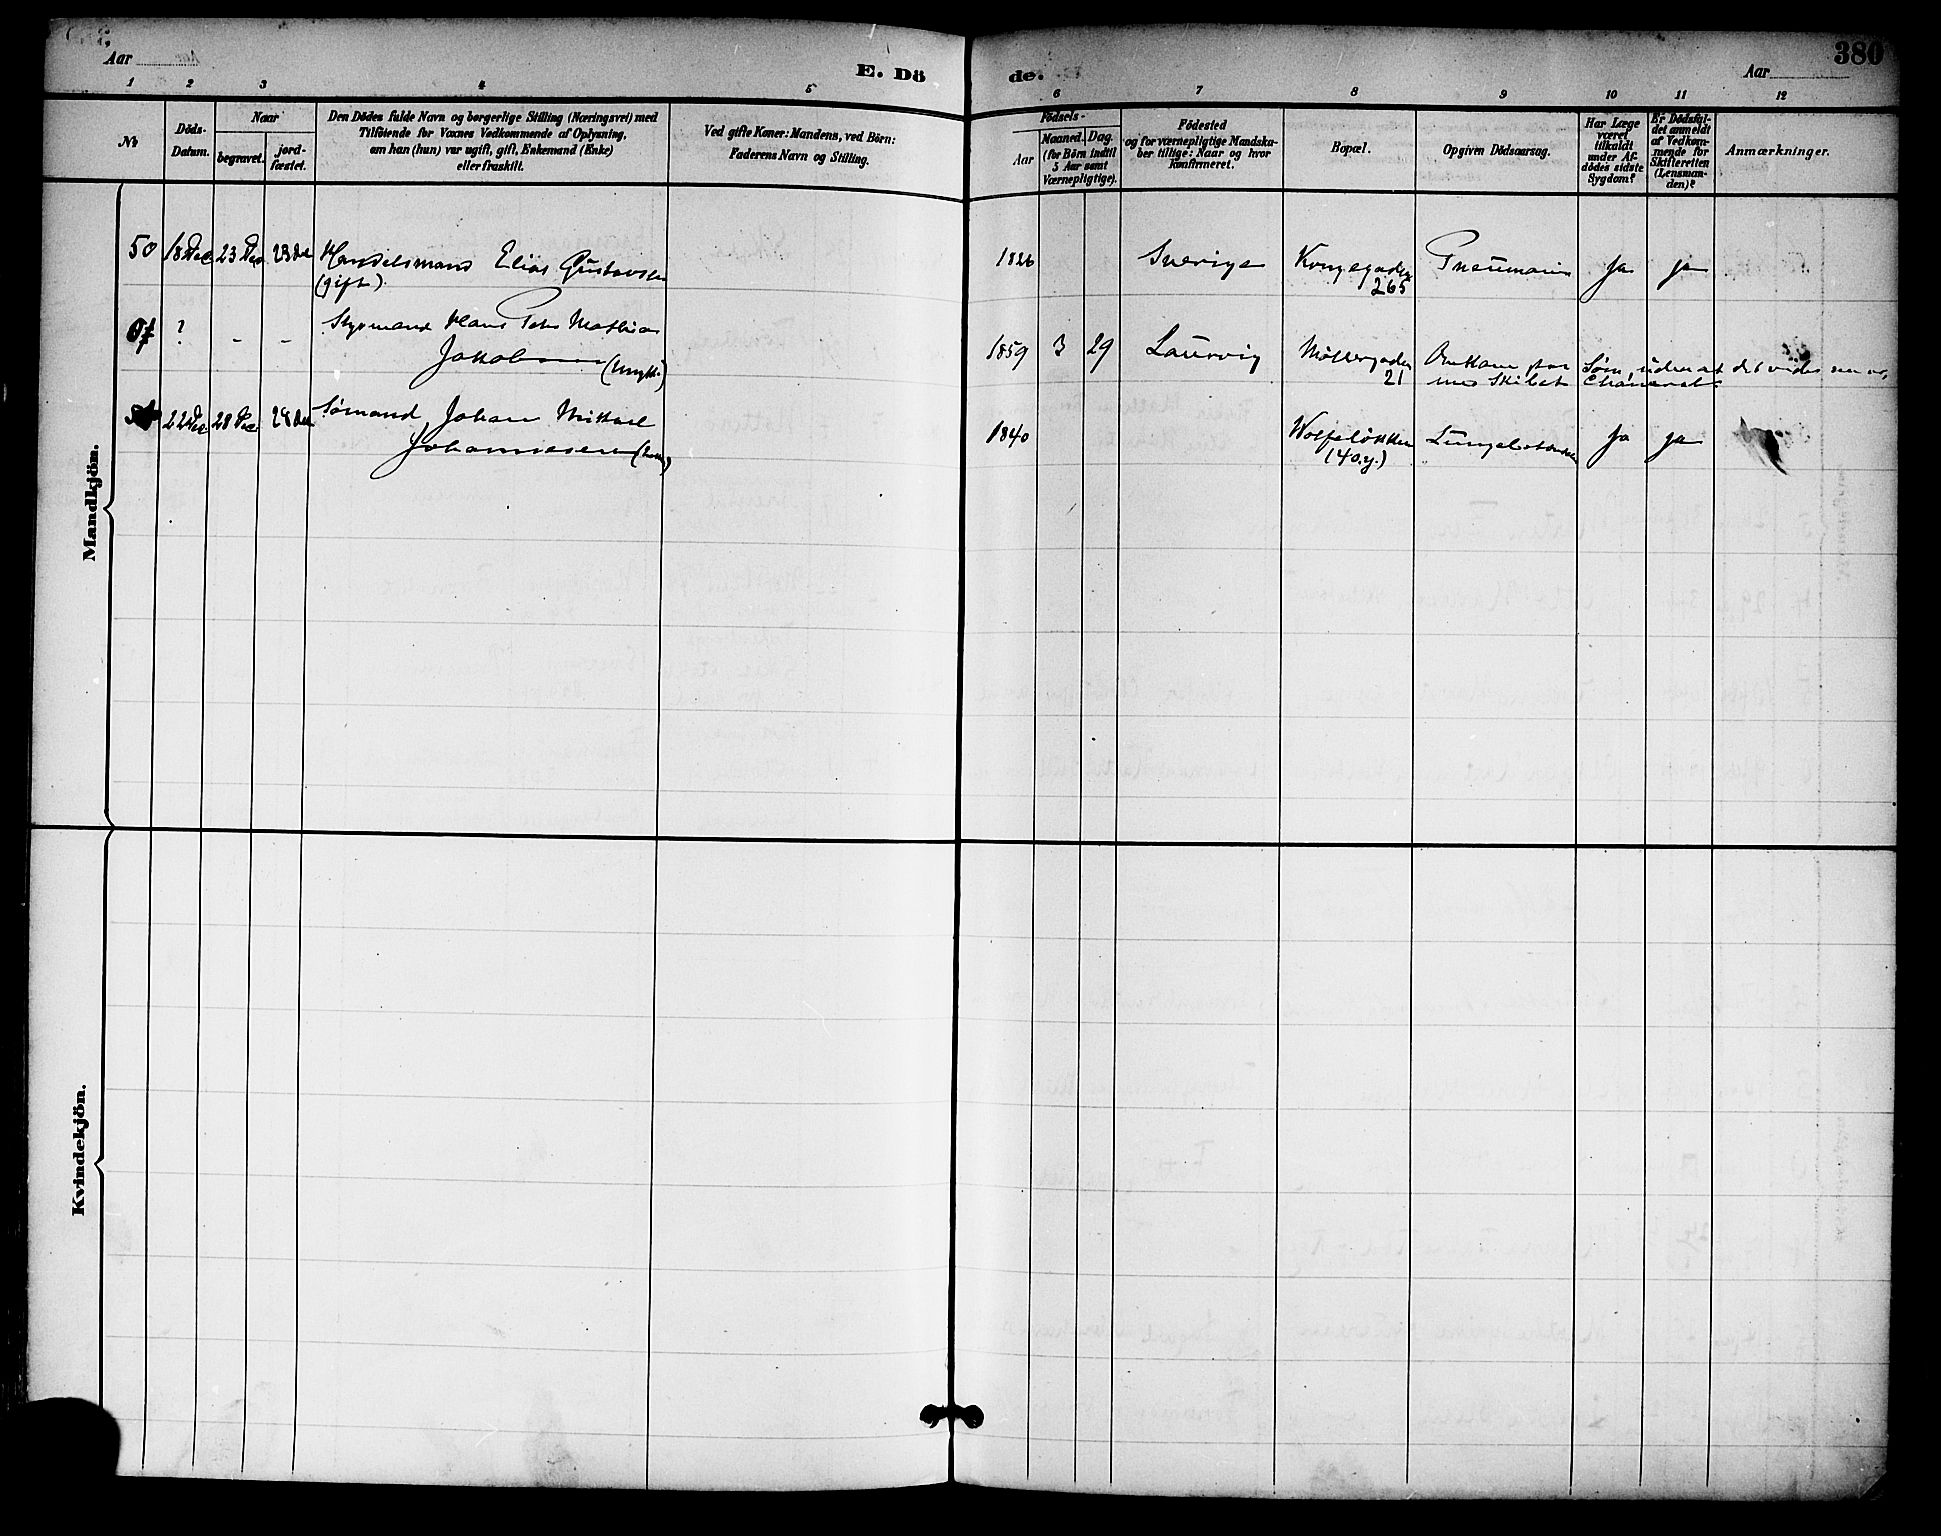 380
Aar
E. Dö
de.
Aar
1 2 3 4 5 6 7 8 9 10 11 12
No
Döds-
Datum.
Naar
begravet.
jord-
fæstet.
Den Dödes fulde Navn og borgerlige Stilling (Næringsvei) med
Tilföiende for Voxnes Vedkommende af Oplysning,
om han (hun) var ugift, gift, Enkemand (Enke)
eller fraskilt.
Ved gifte Koner: Mandens, ved Börn:
Faderens Navn og Stilling.
Födsels-
Aar
Maaned.
Dag.
(for Börn indtil
5 Aar samt
Værnepligtige).
Födested
og for værnepligtige Mandska-
ber tillige: Naar og hvor
konfirmeret.
Bopæl.
Opgiven Dödsaarsag.
Har Læge
været
tilkaldt
under Af-
dödes sidste
Sygdom?
Er Dödsfal-
det anmeldt
af Vedkom-
mende for
Skifteretten
(Lensman-
den)?
Anmærkninger.
Mandkjön.
50 18 Dec 23 Dec 23 De Handelsmand Elias Gustavsen 1826 Sverige Kongegaden Pneumonie Ja ja
(gift) 265
? - - Styrmand Hans Peter Mathias
Jakobsen 1859 3 29 Laurvig Møllergaden Omkom, 
21 med Skibet
22 Dec 28 Dec 28 Dec Sømand Johan Mikael
Johannesen 1840 Ja ja
(40.y.)
Kvindekjön.